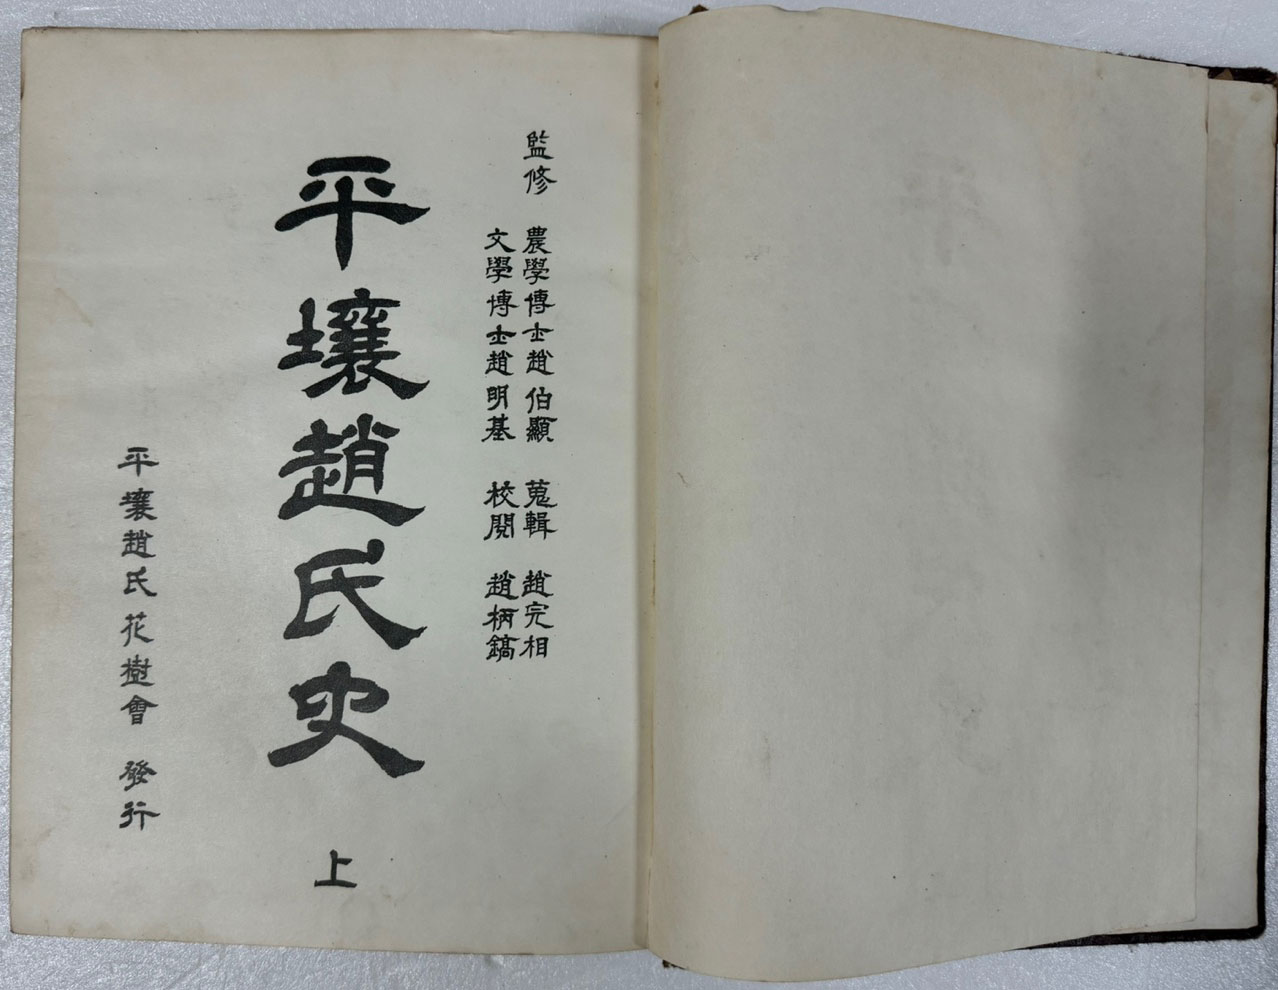 監修 農學博士 趙伯顯 蒐輯 趙完相
文學博士 趙明基 校閱 趙柄鎬
平壤趙氏史 上
平壤趙氏花樹會 發行